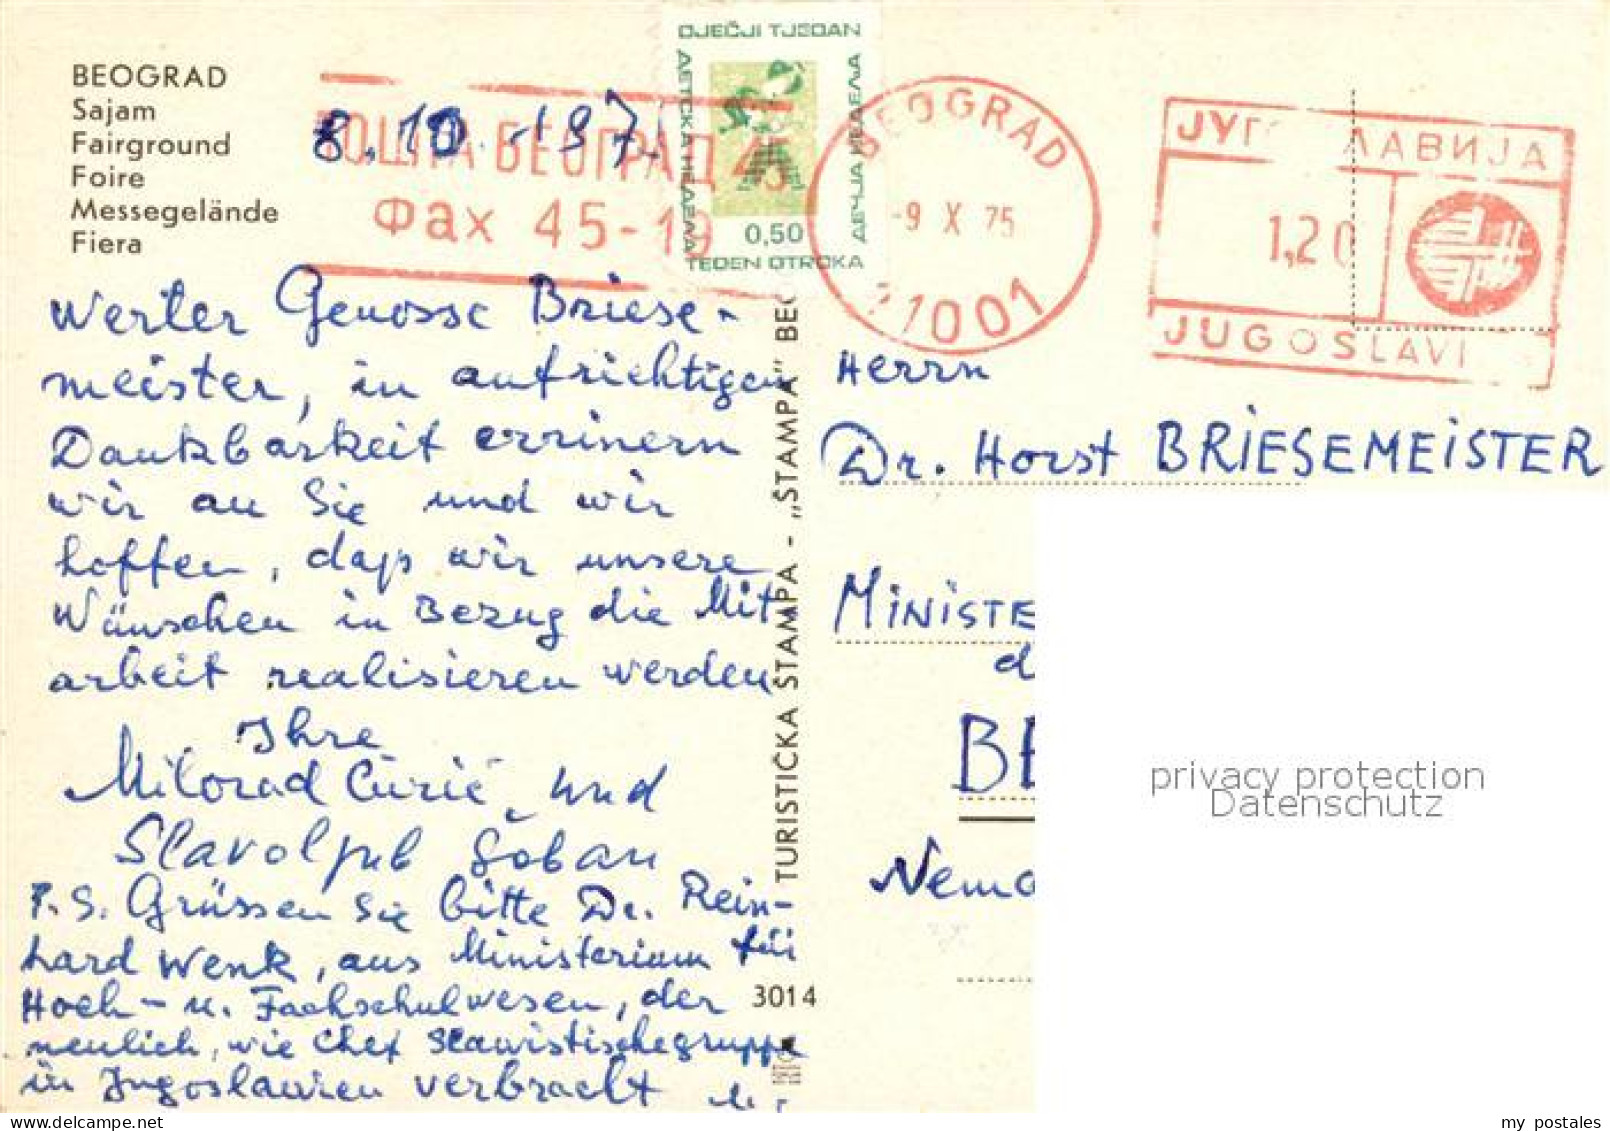 BEOGRAD
Sajam
Fairground
Foire
Messegelände
Fiera
8. 10. -197
ПОШТА БЕОГРАД 45
Фах 45-19
DJEČJI TJEDAN
ДЕТСКА НЕДЕЛА
ДЕЧЈА НЕДЕЉА
0,50
TEDEN OTROKA
BEOGRAD
-9 X 75
11001
ЈУГ ЛАВИЈА
1,20
JUGOSLAVI
Werter Genosse Briese-
meister, in aufrichtigen
Dankbarkeit errinern
wir an Sie und wir
hoffen, daß wir unsere
Wünschen in Bezug die Mit
arbeit realisieren werden
Ihre
Milorad Ćurić und
Slavoljub Šoban
P.S. Grüssen Sie bitte Dr. Rein-
hard Wenk, aus Ministerium für
Hoch- u. Fachschulwesen, der
neulich, wie Chef Slawistischegruppe
in Jugoslawien verbracht
TURISTIČKA ŠTAMPA - „ŠTAMPA" BEO
3014
Herrn
Dr. Horst BRIESEMEISTER
MINISTE
d
BE
Nema
privacy protection
Datenschutz
my postales